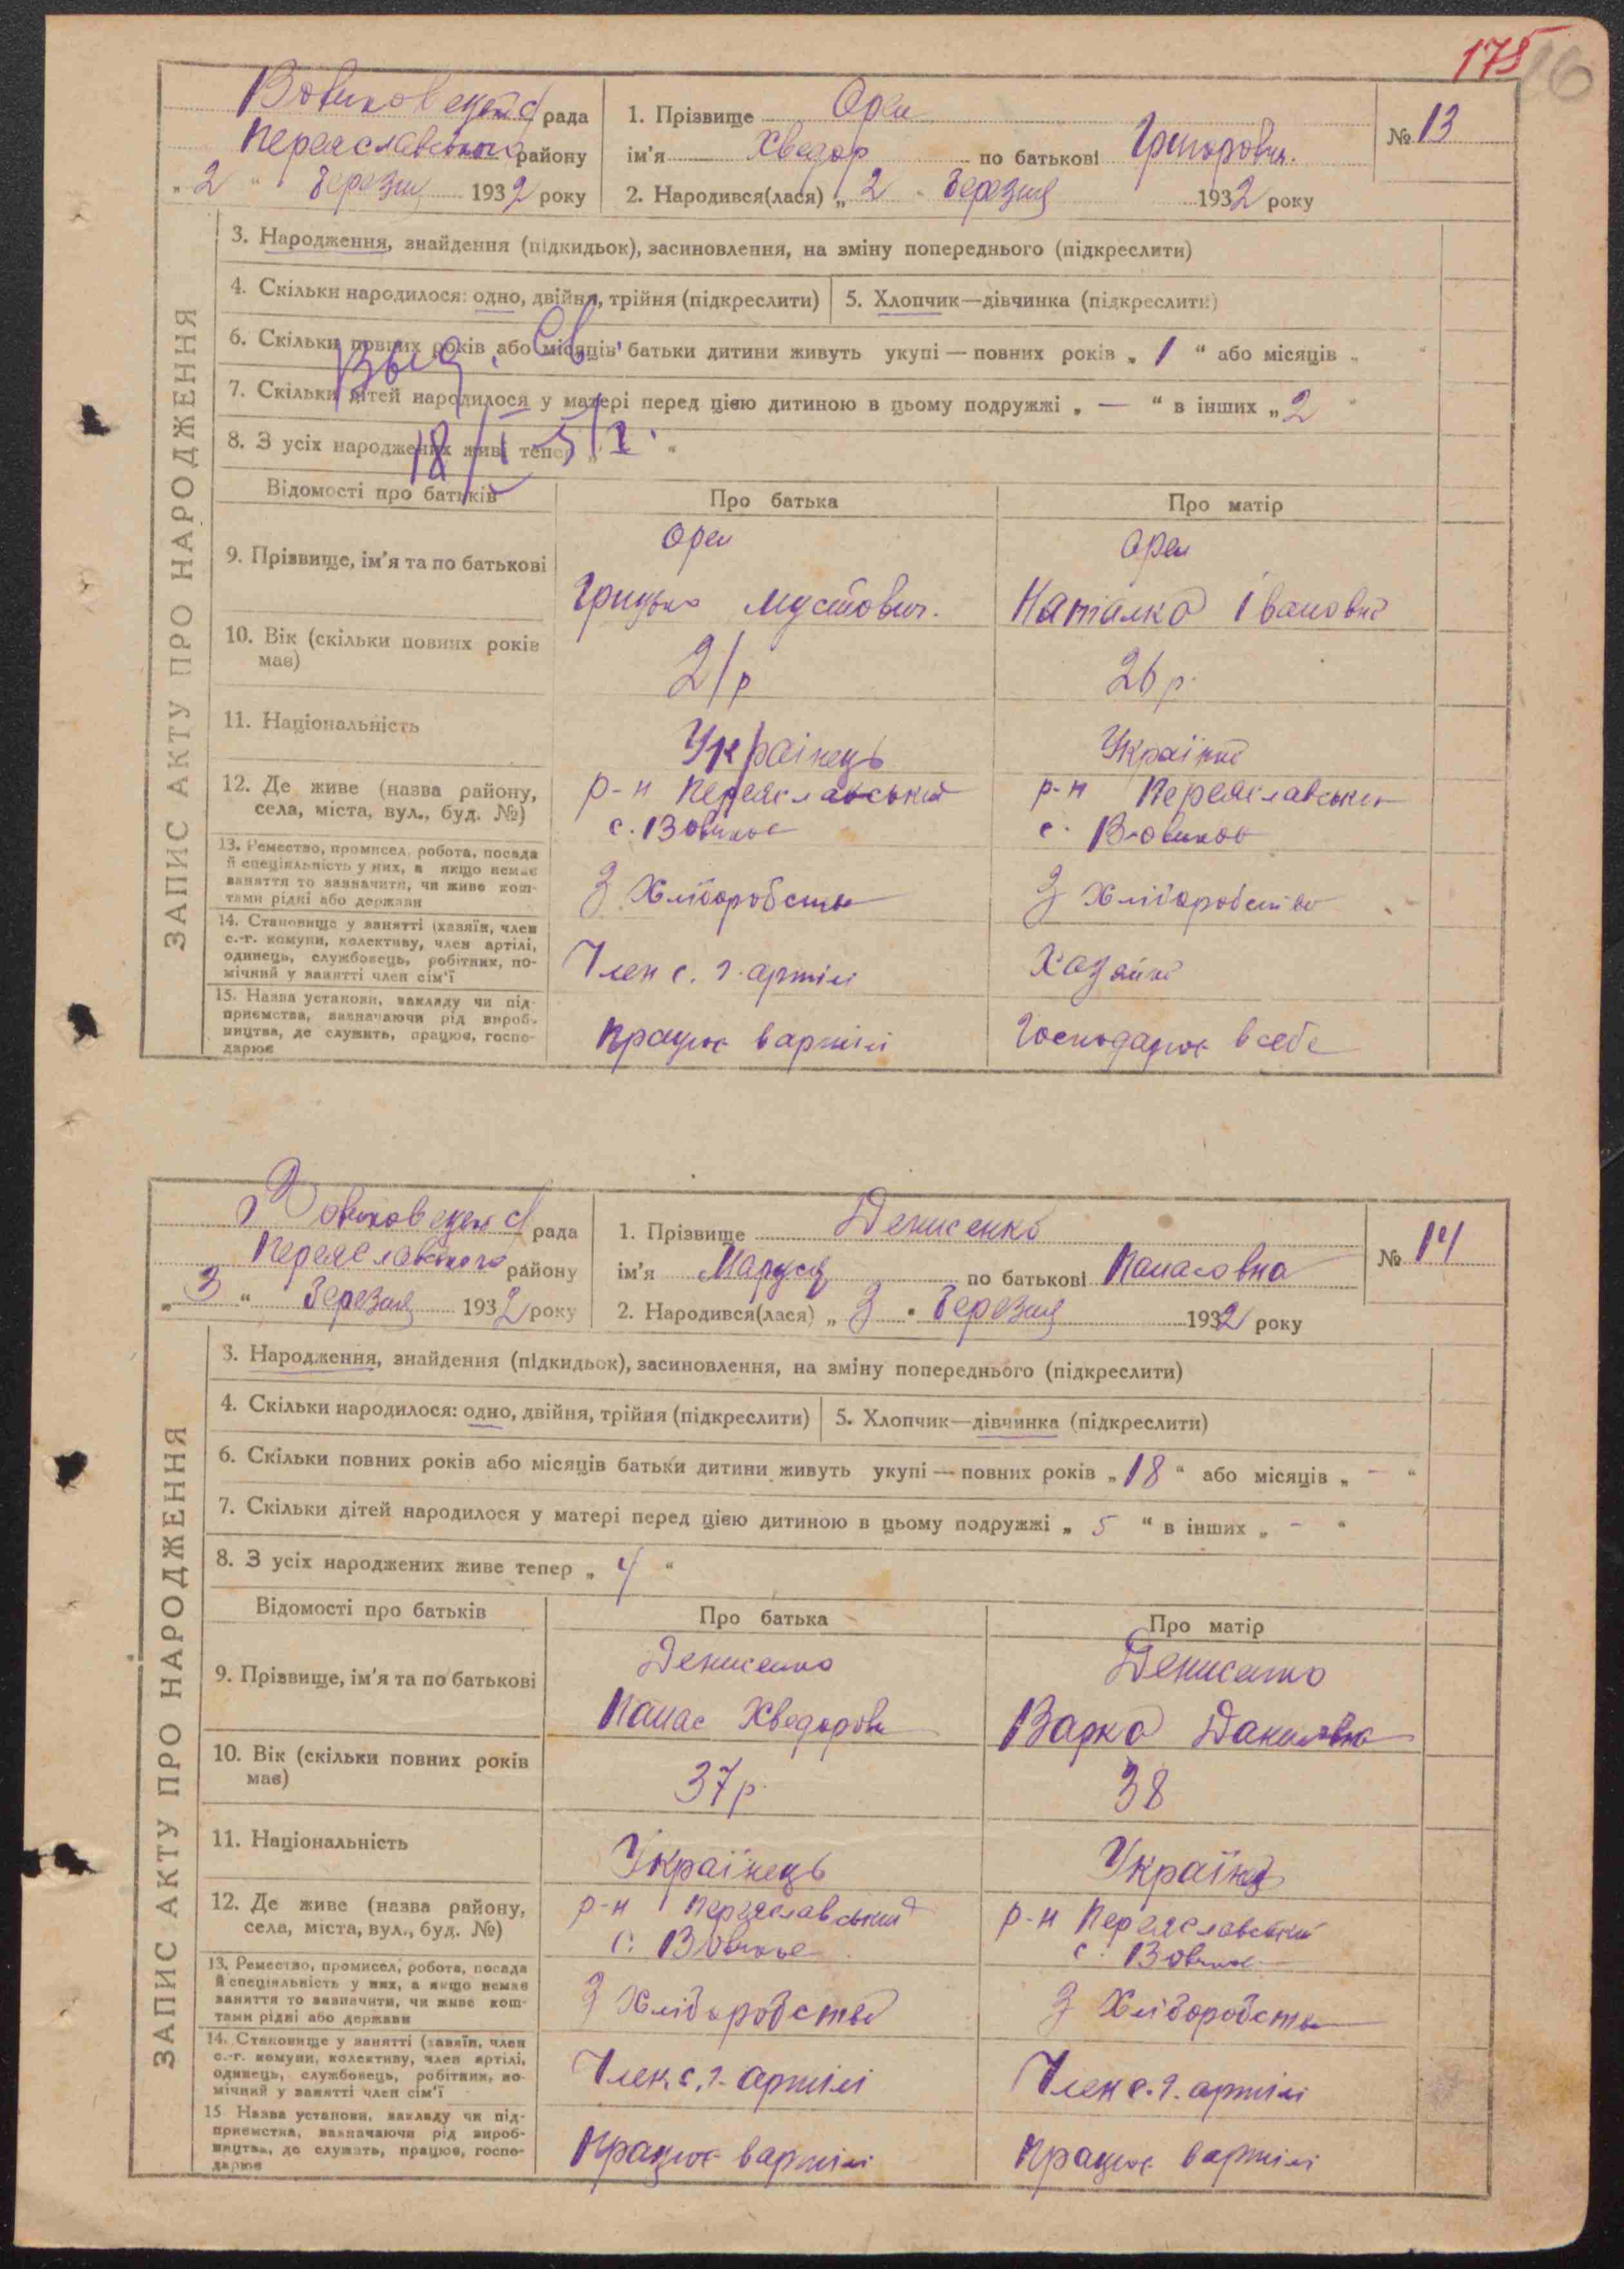 175 16
Вовчков сільс рада
Переяславського району
„2“ березня 1932 року
1. Прізвище Орел
ім'я Хведор по батькові Григорович.
2. Народився(лася) „2“ березня 1932 року
№ 13
ЗАПИС АКТУ ПРО НАРОДЖЕННЯ
3. Народження, знайдення (підкидьок), засиновлення, на зміну попереднього (підкреслити)
4. Скільки народилося: одно, двійня, трійня (підкреслити) 5. Хлопчик—дівчинка (підкреслити)
6. Скільки повних років або місяців батьки дитини живуть укупі — повних років „1“ або місяців „ “
7. Скільки дітей народилося у матері перед цією дитиною в цьому подружжі „—“ в інших „2“
8. З усіх народжених живе тепер „ “
Выд. Св.
Відомості про батьків Про батька Про матір
9. Прізвище, ім'я та по батькові
Орел
Грицько
Орел
Наталка Івановна
10. Вік (скільки повних років має)
21р
26 р.
11. Національність
Українець
Українка
12. Де живе (назва району, села, міста, вул., буд. №)
р-н Переяславський
с. Вовчков
р-н Переяславський
с. Вовчков
13. Ремество, промисел, робота, посада й спеціяльність у них, а якщо немає заняття то зазначити, чи живе коштами рідні або держави
З Хліборобства
З Хліборобства
14. Становище у занятті (хазяїн, член с.-г. комуни, колективу, член артілі, одинець, службовець, робітник, помічний у занятті член сім'ї
Член с. г. артілі
Хазяйка
15. Назва установи, закладу чи підприємства, зазначаючи рід виробництва, де служить, працює, господарює
Працює в артілі
Господарює в себе
Вовчков сільс рада
Переяславського району
„3“ березня 1932 року
1. Прізвище Денисенко
ім'я Маруся по батькові Панасовна
2. Народився(лася) „3“ березня 1932 року
№ 14
ЗАПИС АКТУ ПРО НАРОДЖЕННЯ
3. Народження, знайдення (підкидьок), засиновлення, на зміну попереднього (підкреслити)
4. Скільки народилося: одно, двійня, трійня (підкреслити) 5. Хлопчик—дівчинка (підкреслити)
6. Скільки повних років або місяців батьки дитини живуть укупі — повних років „18“ або місяців „-“
7. Скільки дітей народилося у матері перед цією дитиною в цьому подружжі „5“ в інших „-“
8. З усіх народжених живе тепер „4“
Відомості про батьків Про батька Про матір
9. Прізвище, ім'я та по батькові
Денисенко
Панас Хведорови
Денисенко
Варка Даниловна
10. Вік (скільки повних років має)
37р.
38
11. Національність
Українець
Українка
12. Де живе (назва району, села, міста, вул., буд. №)
р-н Переяславський
с. Вовчков
р-н Переяславський
с. Вовчков
13. Ремество, промисел, робота, посада й спеціяльність у них, а якщо немає заняття то зазначити, чи живе коштами рідні або держави
З Хліборобства
З Хліборобства
14. Становище у занятті (хазяїн, член с.-г. комуни, колективу, член артілі, одинець, службовець, робітник, помічний у занятті член сім'ї
Член с. г. артілі
Член с. г. артілі
15. Назва установи, закладу чи підприємства, зазначаючи рід виробництва, де служить, працює, господарює
Працює в артілі
Працює в артілі